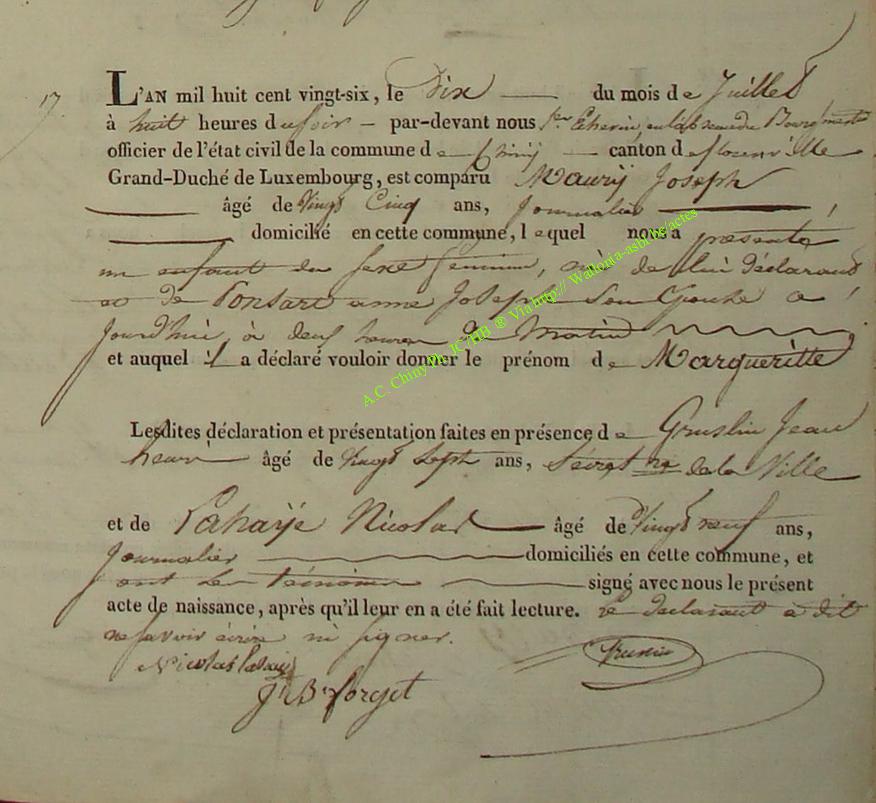 17.
L'AN mil huit cent vingt-six, le Dix du mois de Juillet
à huit heures du soir – par-devant nous 1er Echevin, en l'absence du Bourgmestre
officier de l'état civil de la commune de Chiny canton de florenville
Grand-Duché de Luxembourg, est comparu Maury Joseph
âgé de Vingt Cinq ans, Journalier
domicilié en cette commune, lequel nous a presenté
un enfant du sexe feminin, née de lui déclarant
et de Ponsart anne Joseph Son Epouse a
jourd'hui, à deux heures du Matin
et auquel il a déclaré vouloir donner le prénom de Margueritte
Lesdites déclaration et présentation faites en présence de Gruslin Jean
henri âgé de Vingt Sept ans, Sécretre de la Ville
et de Lahaÿe Nicolas âgé de Vingt neuf ans,
Journalier domiciliés en cette commune, et
ont les témoins signé avec nous le présent
acte de naissance, après qu'il leur en a été fait lecture. le declarant a dit
ne savoir écrire ni signer.
Nicolas Lahaye
Gruslin
J. B. forget
A.C. Chiny Ph. JC /HB ® Via http:// Wallonia-asbl.be/actes